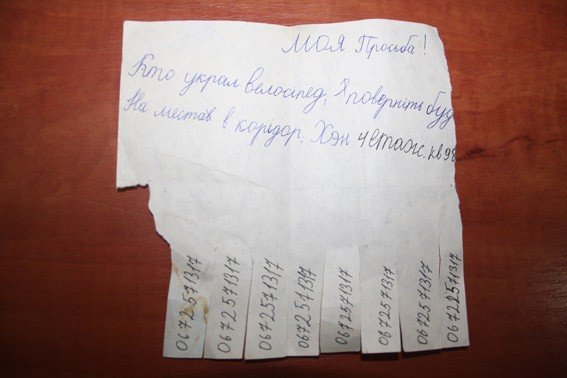 МОЯ Просьба!
Кто украл велосипед, поверніть буд
На местав в корідор. Хэн 4 етаж. кв 98
0672571317
0672571317
0672571317
0672571317
0672571317
0672571317
0672571317
0672571317